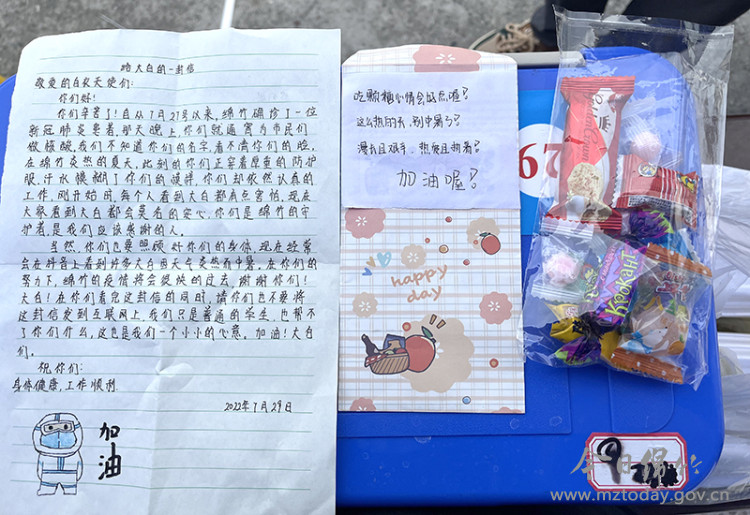 给大白的一封信
敬爱的白衣天使们:
你们好!
你们辛苦了!自从7月27号以来,绵竹确诊了一位
新冠肺炎患者,那天晚上,你们就通宵为市民们
做核酸,我们不知道你们的名字,看不清你们的脸,
在绵竹炎热的夏天,此刻的你们正穿着厚重的防护
服,汗水模糊了你们的视野,你们却依然认真的
工作,刚开始时,每个人看到大白都有点害怕,现在
大家看到大白都会莫名的安心,你们是绵竹的守
护者,是我们应该感谢的人。
当然,你们也要照顾好你们的身体,现在经常
会在抖音上看到许多大白因天气炎热而中暑。在你们的
努力下,绵竹的疫情将会很快的过去,谢谢你们!
大白!在你们看完这封信的同时,请你们也不要将
这封信发到互联网上,我们只是普通的学生,也帮不
了你们什么,这也是我们一个小小的心意。加油!大白
们。
祝你们:
身体健康,工作顺利
2022年7月29日
加
油
吃颗糖心情会好点喔!
这么热的天,别中暑了!
漫长且艰辛,热爱且执着!
加油喔!
happy
day
67
Krokant
9
今日绵竹
www.mztoday.gov.cn